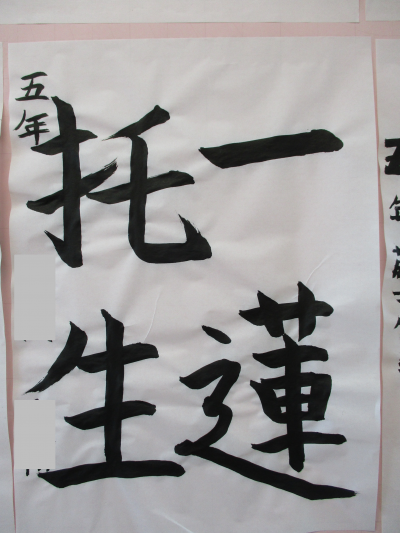 一蓮
托生
五年